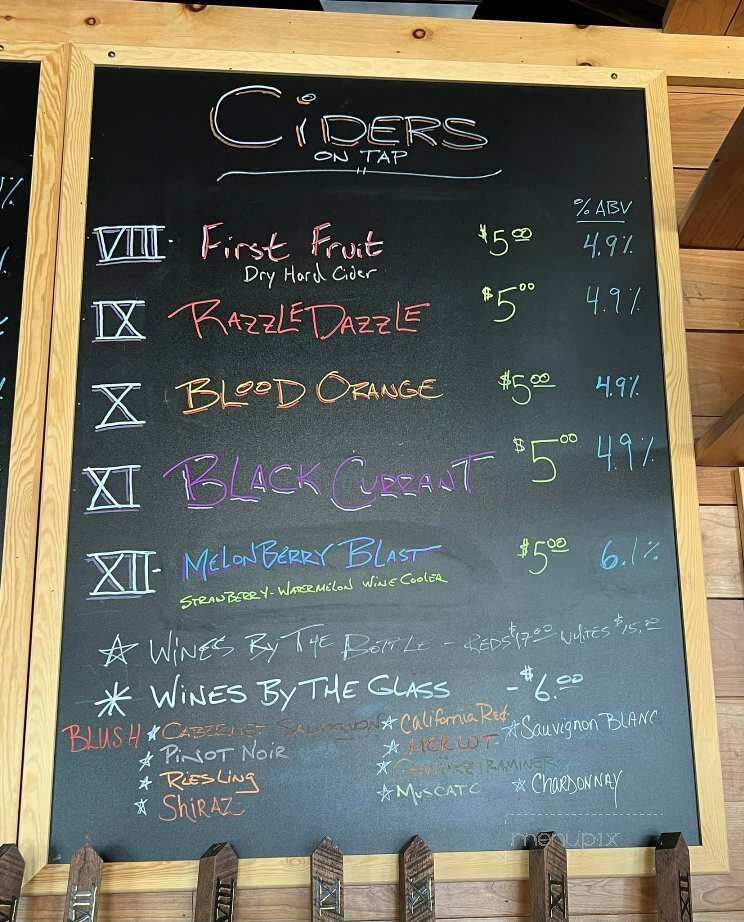 CiDERS
ON TAP
% ABV
VIII First Fruit $5.00 4.9%
Dry Hard Cider
IX RAZZLE DAZZLE $5.00 4.9%
X BLOOD ORANGE $5.00 4.9%
XI BLACK CURRANT $5.00 4.9%
XII- MELONBERRY BLAST $5.00 6.1%
STRAWBERRY-WATERMELON WINE COOLER
☆ WINES BY THE BOTTLE - REDS $17.00 WHITES $15.00
* WINES BY THE GLASS - $6.00
BLUSH ☆ CABERNET SAUVIGNON ☆ California Red ☆ Sauvignon BLANC
☆ PINOT NOIR ☆ MERLOT
☆ RIESLING ☆ GEWURZTRAMINER
☆ SHIRAZ ☆ MUSCATO ☆ CHARDONNAY
menupix
VII VIII IX XI XII